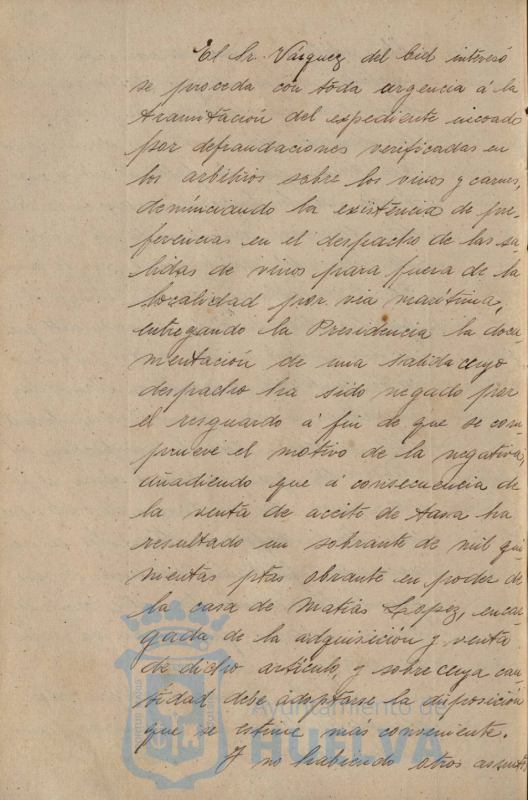 El Sr. Vázquez del Cid interesó
se proceda con toda urgencia á la
tramitación del expediente incoado
por defraudaciones verificadas en
los arbitrios sobre los vinos y carnes,
denunciando la existencia de pre-
ferencias en el despacho de las sa-
lidas de vinos para fuera de la
localidad por via maritima,
entregando la Presidencia la docu-
mentación de una salida cuyo
despacho ha sido negado por
el resguardo á fin de que se com-
prueve el motivo de la negativa,
añadiendo que á consecuencia de
la venta de aceite de tasa ha
resultado un sobrante de mil qui-
nientas ptas obrante en poder de
la casa de Matias Lopez, encar-
gada de la adquisición y venta
de dicho articulo, y sobre cuya can-
tidad debe adoptarse la disposición
que se estime más conveniente.
Y no habiendo otros asuntos
Ayuntamiento de
HUELVA